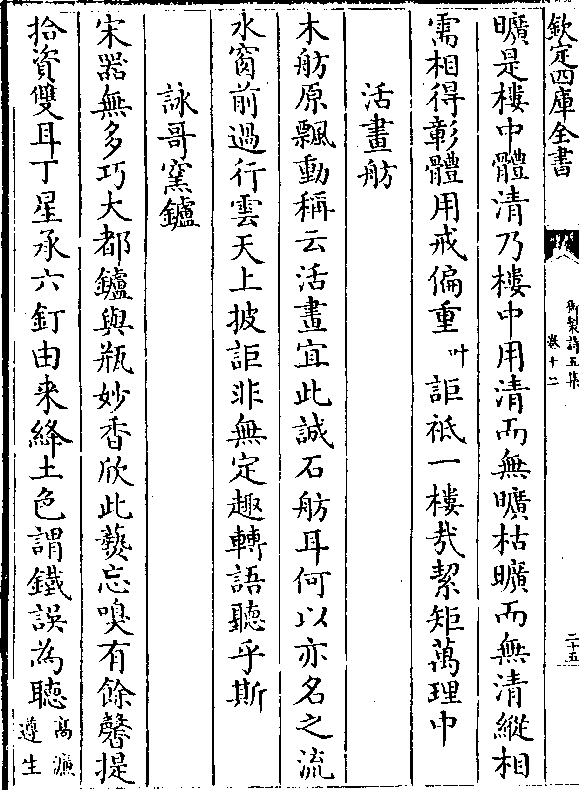 欽定四庫全書
御製詩五集
卷十二
二十五
曠是樓中體清乃樓中用清而無曠枯曠而無清縱相
需相得彰體用戒偏重叶詎祗一樓哉絜矩萬理中
活畫舫
木舫原飄動稱云活畫宜此誠石舫耳何以亦名之流
水窗前過行雲天上披詎非無定趣轉語聽乎斯
詠哥窯鑪
宋器無多巧大都鑪與瓶妙香欣此爇忘嗅有餘馨提
拾資雙耳丁星承六釘由来絳土色謂鐵誤為聽髙濂
遵生